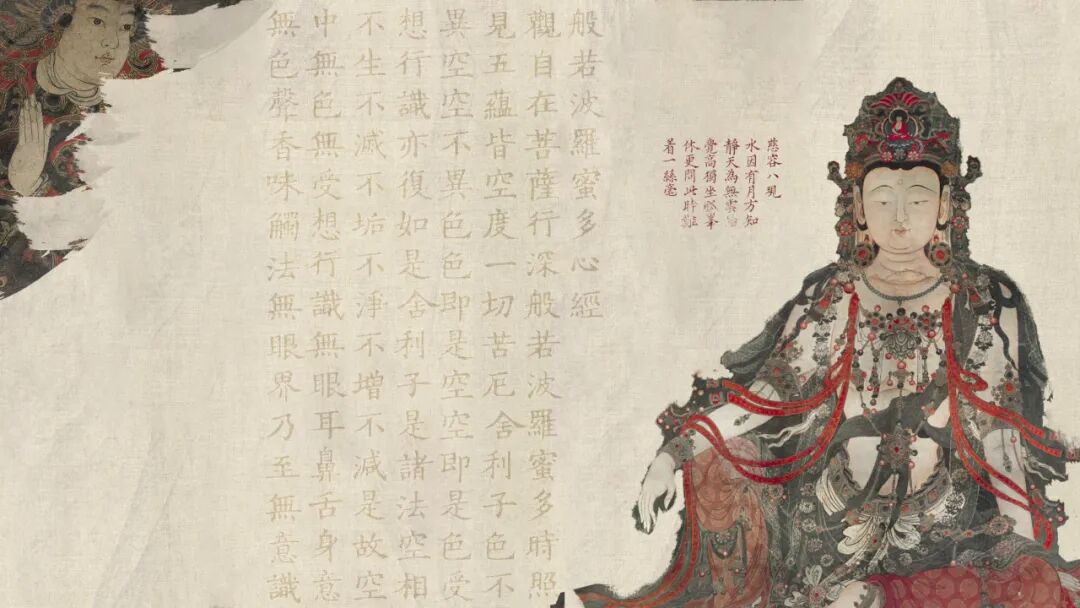 慈容八現
水因有月方知
靜天為無雲
覺高獨坐峯
休更問此時難
着一絲毫
般若波羅蜜多心經
觀自在菩薩行深般若波羅蜜多時照
見五蘊皆空度一切苦厄舍利子色不
異空空不異色色即是空空即是色受
想行識亦復如是舍利子是諸法空相
不生不滅不垢不淨不增不減是故空
中無色無受想行識無眼耳鼻舌身意
無色聲香味觸法無眼界乃至無意識